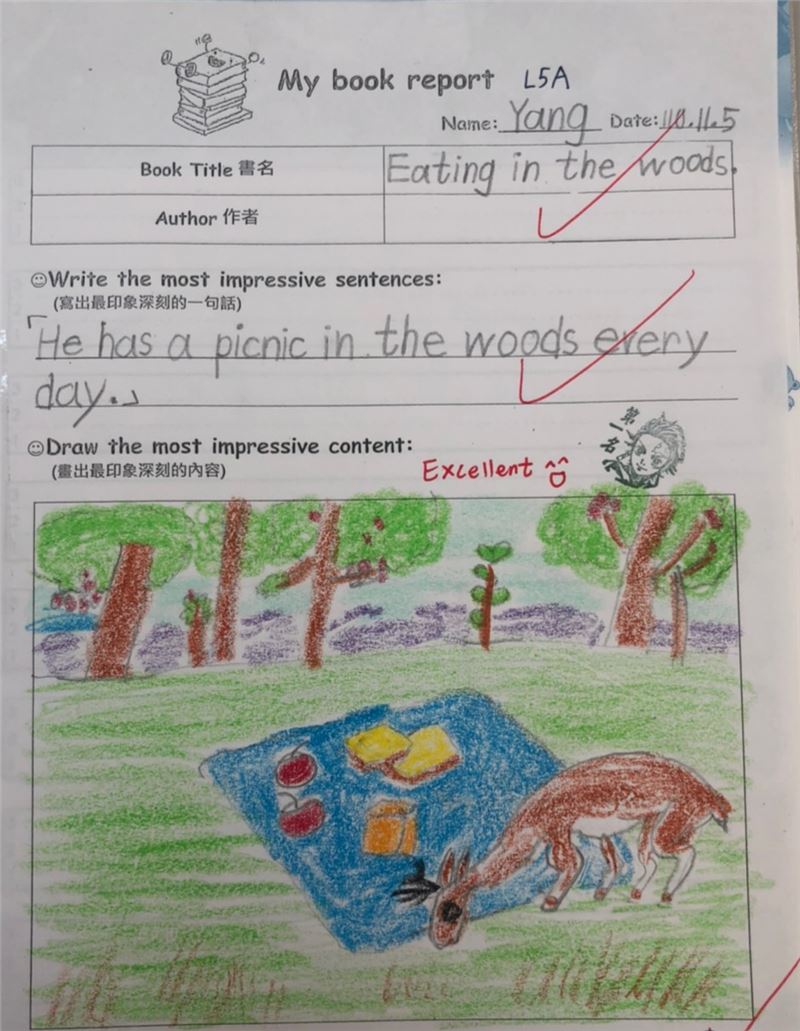 My book report L5A
Name: Yang Date: 110.11.5
Book Title 書名 Eating in the woods.
Author 作者
Write the most impressive sentences:
(寫出最印象深刻的一句話)
「He has a picnic in the woods every
day.」
第一名
Draw the most impressive content:
(畫出最印象深刻的內容)
Excellent